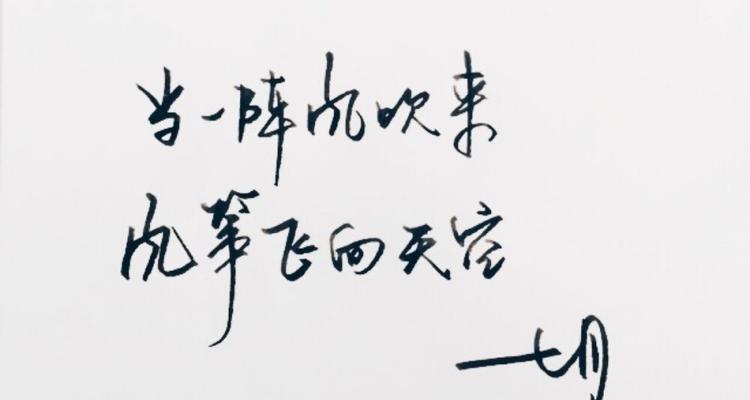 当一阵风吹来
风筝飞向天空
——七月